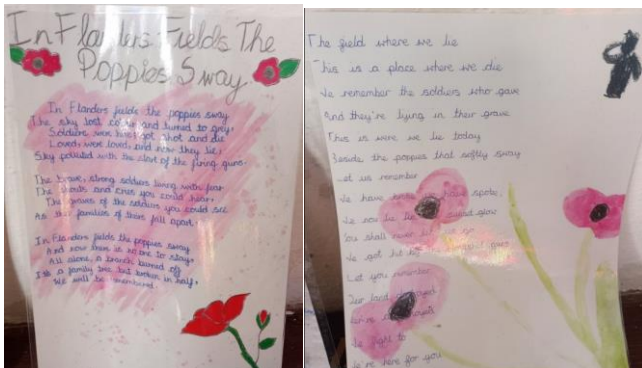 In Flanders Fields The
Poppies Sway
In Flanders fields the poppies sway
The sky lost and turned to grey,
Soldiers were shot and die
Loved, were loved and now they lie,
Sky polluted with the of the firing guns.
The brave, strong soldiers living with fear
The shouts and cries you could hear,
The graves of the soldiers you could see
As the families of them fall apart.
In Flanders fields the poppies sway
And now there is no one to stay,
All alone, a branch burned off
It's a family tree but broken in half,
We will be remembered.
The field where we lie
This is a place where we die
We remember the soldiers who gave
And they're lying in their grave
This is were we lie today
Beside the poppies that softly sway
Let us remember
We have spoke,
We now lie glow
You shall never go
We got hit by guns
Let you remember
Our land
We're
We fight to
We're here for you